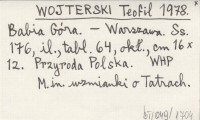 WOJTERSKI Teofil 1978.
Babia Góra. — Warszawa. Ss.
176, il., tabl. 64, okł., cm 16 x
12. Przyroda Polska. WHP
M.in. wzmianki o Tatrach.